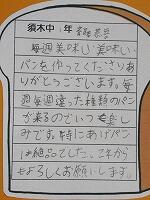 須木中 , 年
毎週美味しい美味しい
パンを作ってくださりあ
りがとうございます。毎
週毎週違った種類のパン
が来るのでいつも楽し
みです。特にあげパン
は絶品でした。これから
もよろしくお願いします。